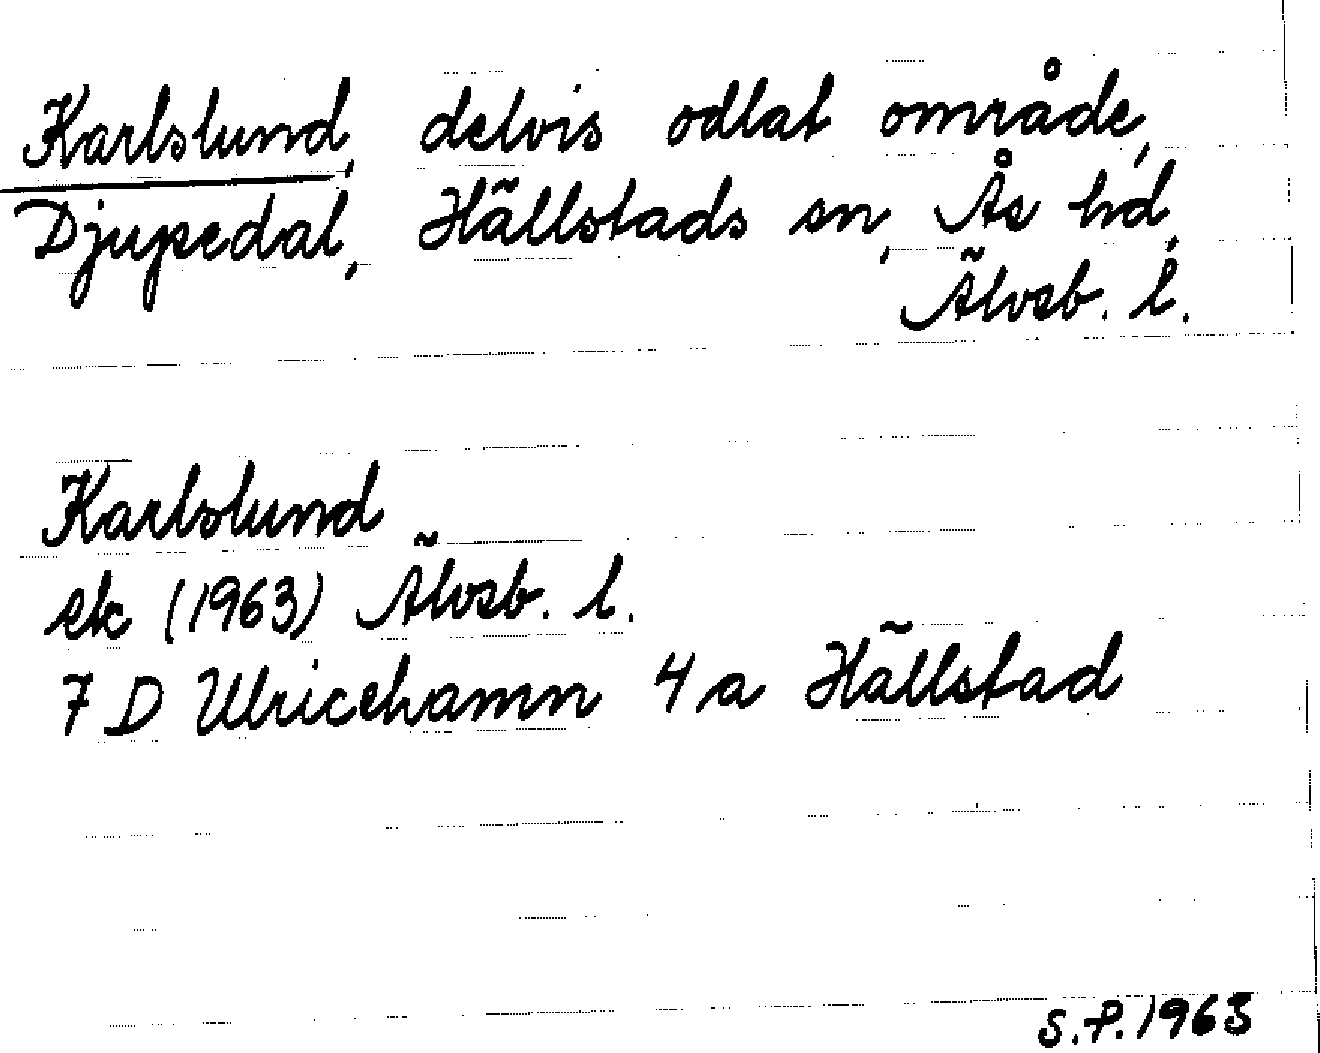 Karlslund, delvis odlat område,
Djupedal, Hällstads sn, Ås hd,
Älvsb. l.
Karlslund
ek (1963) Älvsb. l.
7 D Ulricehamn 4 a Hällstad
S.P. 1963